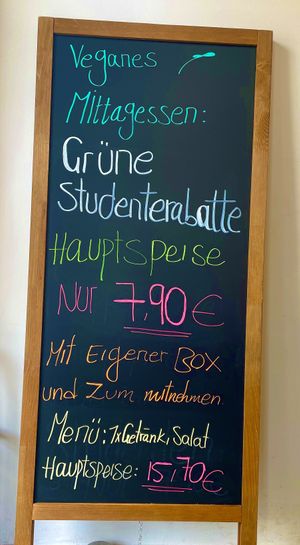 Veganes
Mittagessen:
Grüne
Studenterabatte
Hauptspeise
Nur 7,90€
Mit Eigener BOX
und Zum mitnehmen.
Menü: 1xGetränk, Salat
Hauptspeise: 15,70€